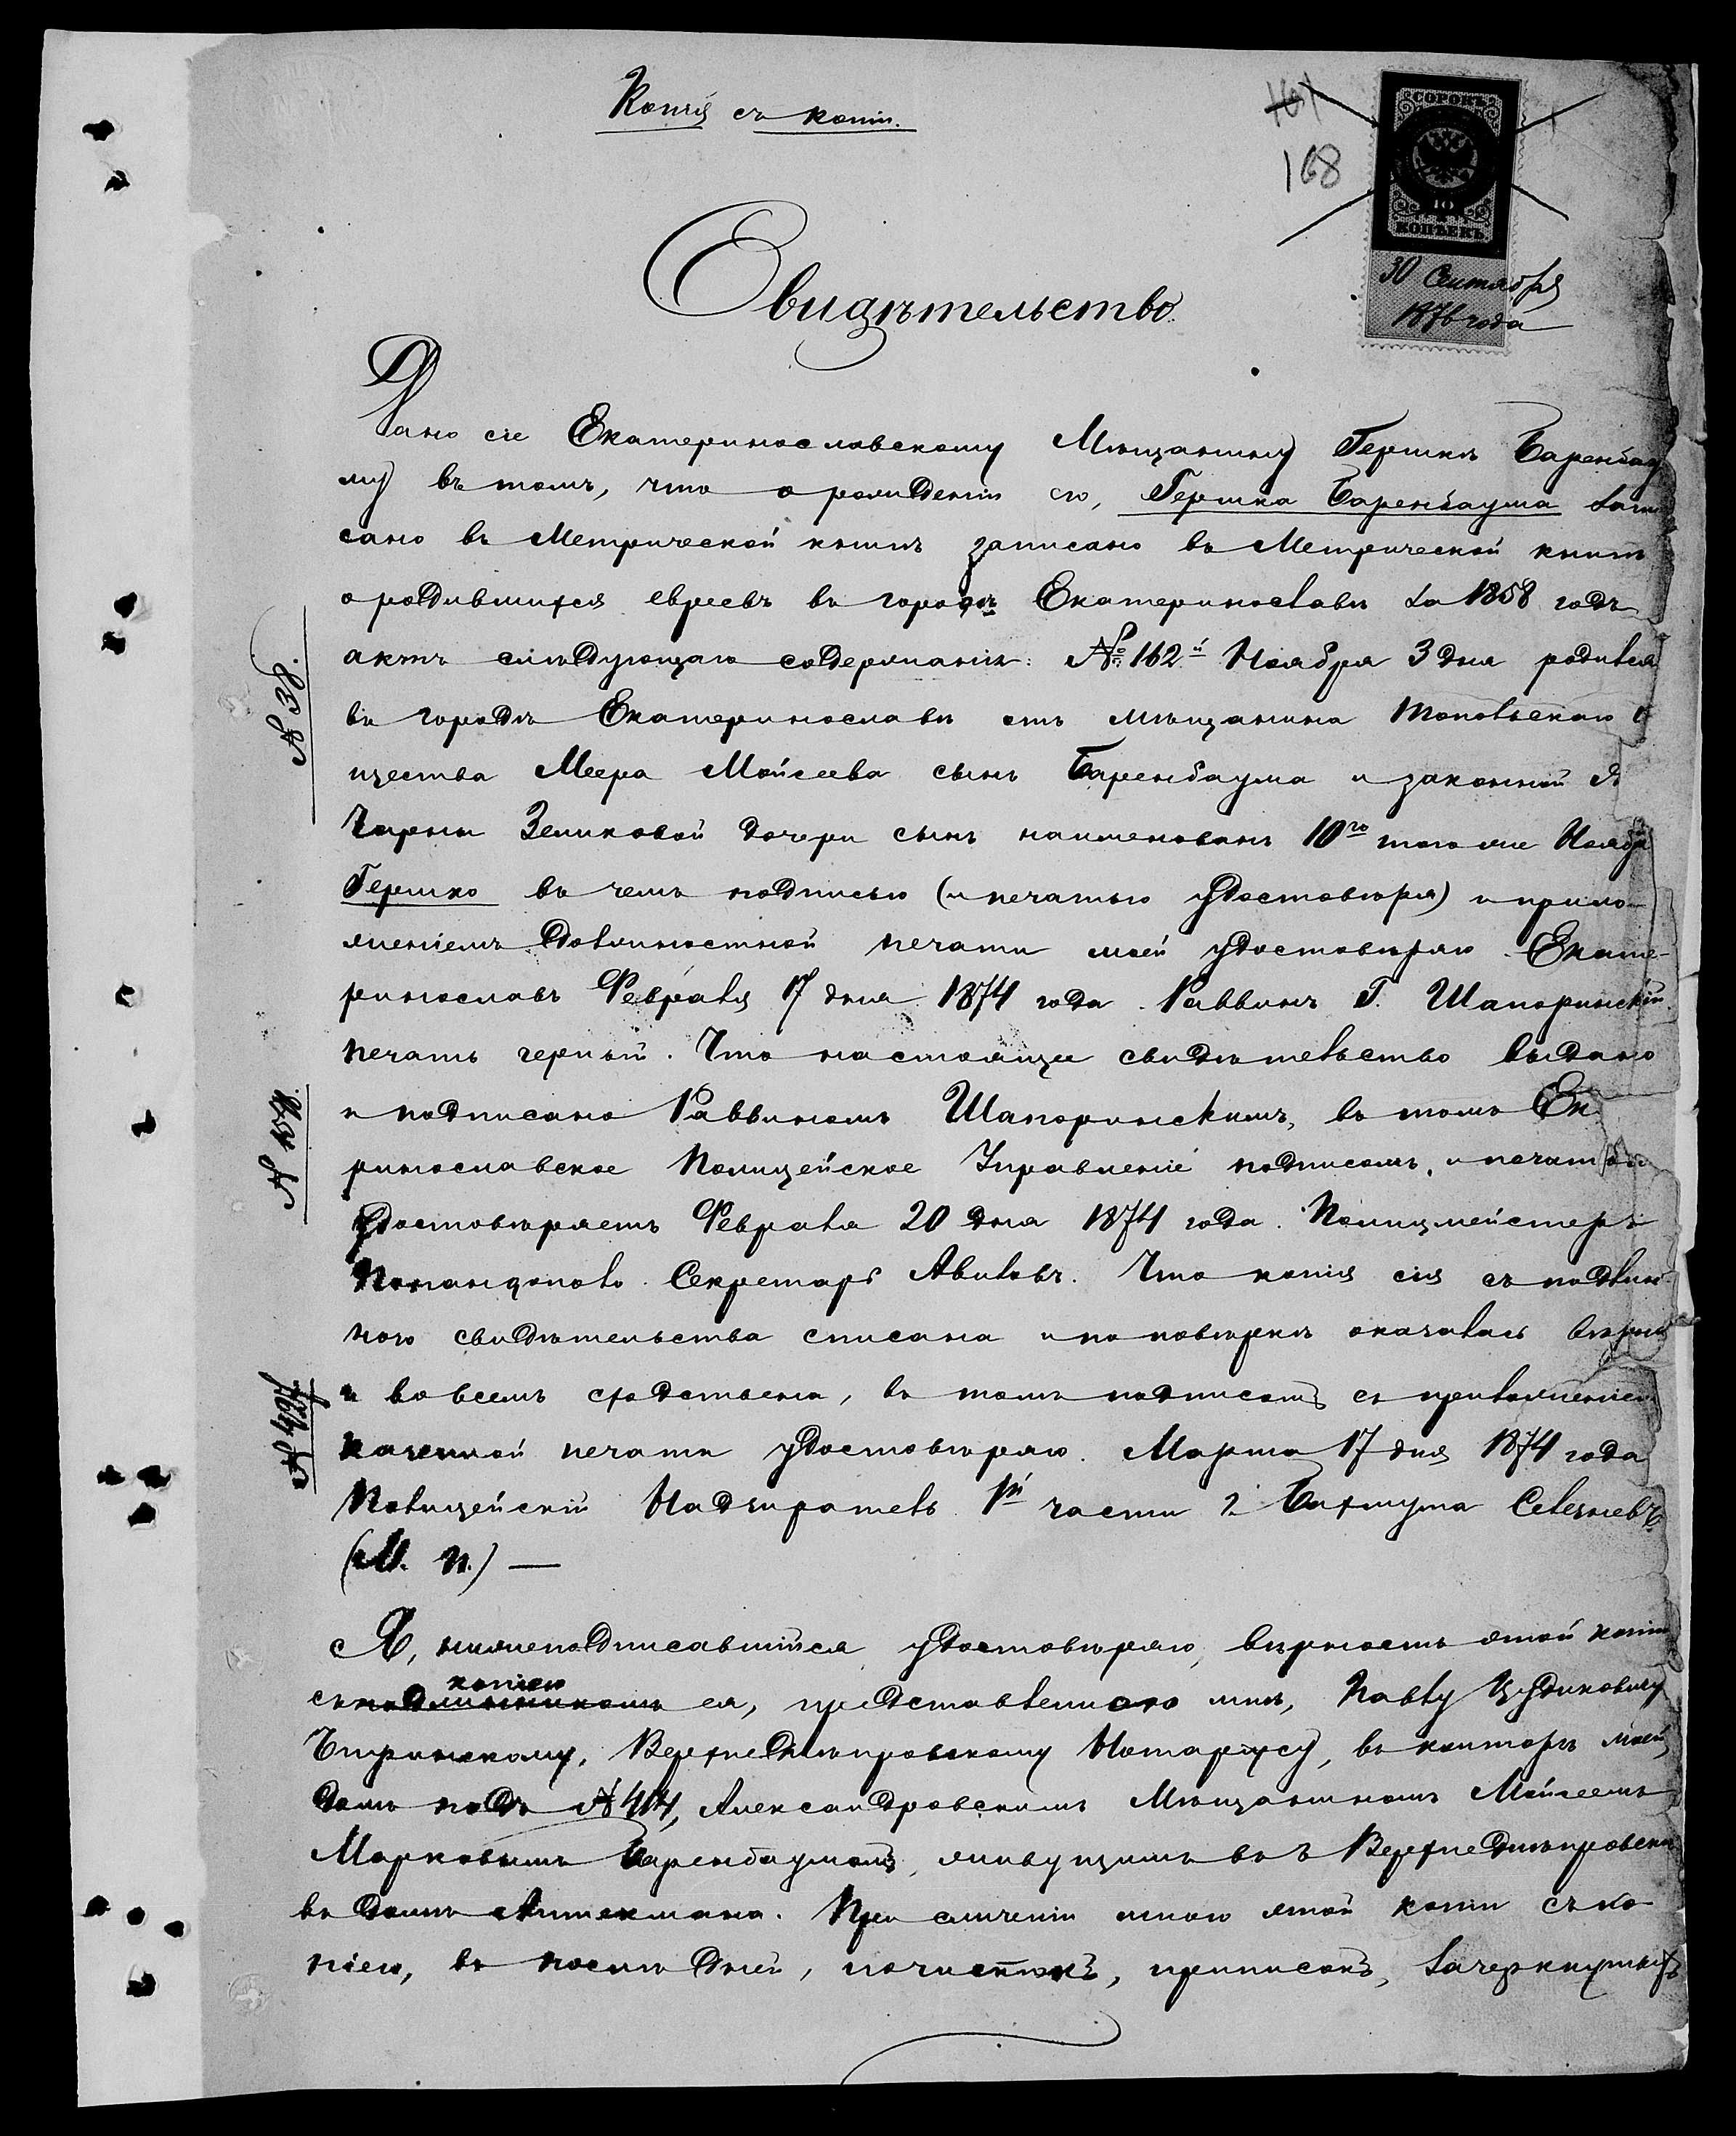 Копія съ копіи.
101
168
СОРОКЪ
40
КОПѢЕКЪ
30 Сентября
1876 года
Свидѣтельство
Дано сіе Екатеринославскому Мѣщанину Гершкѣ Баренбау
му въ томъ, что о рожденіи его, Гершка Баренбаума запи
сано въ Метрической книгѣ записано въ Метрической книгѣ
о родившихся евреевъ въ городѣ Екатеринославѣ за 1858 годъ
актъ слѣдующаго содержанія: № 162й Ноября 3 дня родился
№ 38.
въ городѣ Екатеринославѣ отъ мѣщанина общества
щества Меера Мойсеева сынъ Баренбаума и законной
Зеликовой дочери сынъ наименованъ 10го того же Ноября
Гершко въ чемъ подписью (и печатью удостовѣря) и прило-
женіемъ должностной печати моей удостовѣряю. Екате-
ринославъ Февраля 17 дня 1874 года. Раввинъ Г. Шапоринскій
печать черный. Что настоящее свидѣтельство выдано
и подписано Раввиномъ Шапоринскимъ, въ томъ Ек
№
ринославское Полицейское Управленіе подписомъ, и печатью
удостовѣряетъ Февраля 20 дня 1874 года. Полицмейстеръ
Секретарь Что копія сія съ подлин-
ного свидѣтельства списана и по повѣркѣ оказалась вѣрна
и во всемъ сходственна, въ томъ подписомъ съ приложеніемъ
№
казенной печати удостовѣряю. Марта 17 дня 1874 года
Полицейскій Надзиратель 1й части г. Бахмута
(М. п.) —
Я, нижеподписавшійся удостовѣряю, вѣрность этой копіи
копіею
съ подлинникомъ ея, представленною мнѣ, Павлу
Верхнеднѣпровскому Нотаріусу, въ конторѣ моей
домъ подъ № 414, Александровскимъ Мѣщаниномъ Мойсеемъ
Марковымъ Баренбаумомъ, живущимъ въ г Верхнеднѣпровскѣ
въ домѣ Аптекмана. При сличеніи мною этой копіи съ ко-
піею, въ последней, почистокъ, приписокъ, зачеркнутыхъ